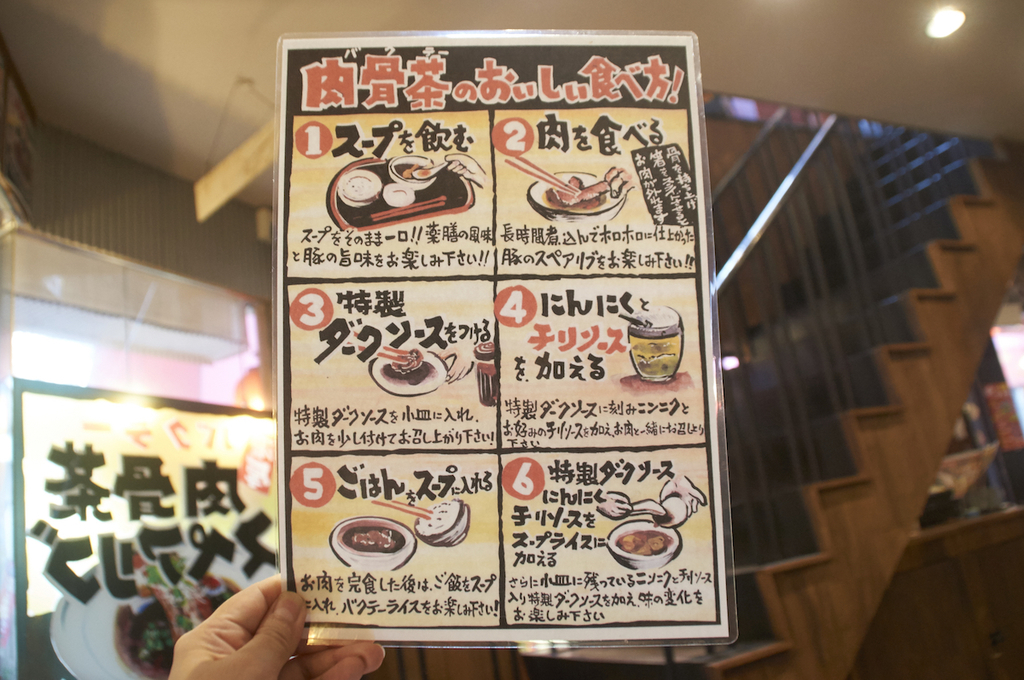 バクテー
肉骨茶のおいしい食べ方!
1 スープを飲む
スープをそのまま一口!!薬膳の風味
と豚の旨味をお楽しみ下さい!!
2 肉を食べる
骨を持ち上げ
箸でスライドさせると
お肉が外れます
長時間煮込んでホロホロに仕上がった
豚のスペアリブをお楽しみ下さい!!
3 特製
ダークソースをつける
特製ダークソースを小皿に入れ、
お肉を少し付けてお召し上がり下さい!
4 にんにくと
チリソース
を加える
特製ダークソースに刻みニンニクと
お好みのチリソースを加え、お肉と一緒にお召し上り
下さい
5 ごはんをスープに入れる
お肉を完食した後は、ご飯をスープ
に入れ、バクテーライスをお楽しみ下さい!
6 特製ダークソース
にんにく
チリソースを
スープライスに
加える
さらに小皿に残っているニンニクとチリソース
入り特製ダークソースを加え、味の変化を
お楽しみ下さい
バクテー
肉骨茶